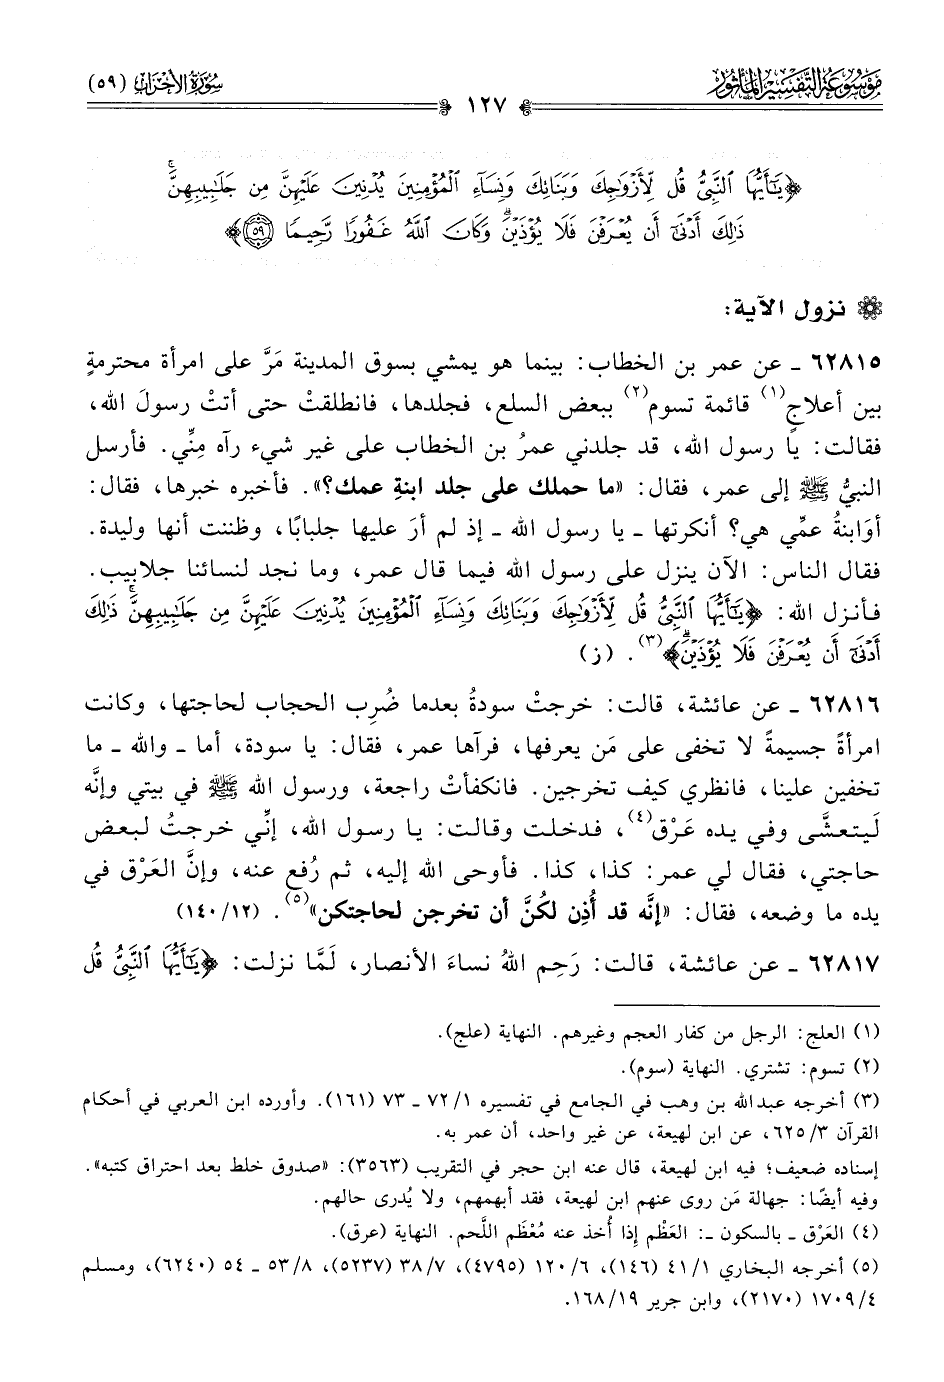 مَوْسُوعَة التَّفْسِير المَأْثُور
سُورَةُ الأَحْزَاب (٥٩)
١٢٧
﴿يَٰٓأَيُّهَا ٱلنَّبِىُّ قُل لِّأَزْوَٰجِكَ وَبَنَاتِكَ وَنِسَآءِ ٱلْمُؤْمِنِينَ يُدْنِينَ عَلَيْهِنَّ مِن جَلَٰبِيبِهِنَّ ۚ
ذَٰلِكَ أَدْنَىٰٓ أَن يُعْرَفْنَ فَلَا يُؤْذَيْنَ ۗ وَكَانَ ٱللَّهُ غَفُورًا رَّحِيمًا ٥٩﴾
نزول الآية:
٦٢٨١٥ ـ عن عمر بن الخطاب: بينما هو يمشي بسوق المدينة مَرَّ على امرأة محترمةٍ
بين أعلاجٍ(١) قائمة تسوم(٢) ببعض السلع، فجلدها، فانطلقتْ حتى أتتْ رسولَ الله،
فقالت: يا رسول الله، قد جلدني عمرُ بن الخطاب على غير شيء رآه مِنِّي. فأرسل
النبيُّ ﷺ إلى عمر، فقال: «ما حملك على جلد ابنةِ عمك؟». فأخبره خبرها، فقال:
أوَابنةُ عمِّي هي؟ أنكرتها ـ يا رسول الله ـ إذ لم أرَ عليها جلبابًا، وظننت أنها وليدة.
فقال الناس: الآن ينزل على رسول الله فيما قال عمر، وما نجد لنسائنا جلابيب.
فأنزل الله: ﴿يَٰٓأَيُّهَا ٱلنَّبِىُّ قُل لِّأَزْوَٰجِكَ وَبَنَاتِكَ وَنِسَآءِ ٱلْمُؤْمِنِينَ يُدْنِينَ عَلَيْهِنَّ مِن جَلَٰبِيبِهِنَّ ۚ ذَٰلِكَ
أَدْنَىٰٓ أَن يُعْرَفْنَ فَلَا يُؤْذَيْنَ ۗ﴾(٣). (ز)
٦٢٨١٦ ـ عن عائشة، قالت: خرجتْ سودةُ بعدما ضُرِب الحجاب لحاجتها، وكانت
امرأةً جسيمةً لا تخفى على مَن يعرفها، فرآها عمر، فقال: يا سودة، أما ـ والله ـ ما
تخفين علينا، فانظري كيف تخرجين. فانكفأتْ راجعة، ورسول الله ﷺ في بيتي وإنَّه
لَيتعشَّى وفي يده عَرْق(٤)، فدخلت وقالت: يا رسول الله، إنِّي خرجتُ لبعض
حاجتي، فقال لي عمر: كذا، كذا. فأوحى الله إليه، ثم رُفع عنه، وإنَّ العَرْق في
يده ما وضعه، فقال: «إنَّه قد أُذِن لكُنَّ أن تخرجن لحاجتكن»(٥). (١٢/١٤٠)
٦٢٨١٧ ـ عن عائشة، قالت: رَحِم اللهُ نساءَ الأنصار، لَمَّا نزلت: ﴿يَٰٓأَيُّهَا ٱلنَّبِىُّ قُل
(١) العلج: الرجل من كفار العجم وغيرهم. النهاية (علج).
(٢) تسوم: تشتري. النهاية (سوم).
(٣) أخرجه عبدالله بن وهب في الجامع في تفسيره ١/ ٧٢ ـ ٧٣ (١٦١). وأورده ابن العربي في أحكام
القرآن ٣/ ٦٢٥، عن ابن لهيعة، عن غير واحد، أن عمر به.
إسناده ضعيف؛ فيه ابن لهيعة، قال عنه ابن حجر في التقريب (٣٥٦٣): «صدوق خلط بعد احتراق كتبه».
وفيه أيضًا: جهالة مَن روى عنهم ابن لهيعة، فقد أبهمهم، ولا يُدرى حالهم.
(٤) العَرْق ـ بالسكون ـ: العَظْم إذا أُخذ عنه مُعْظَم اللَّحم. النهاية (عرق).
(٥) أخرجه البخاري ١/ ٤١ (١٤٦)، ٦/ ١٢٠ (٤٧٩٥)، ٧/ ٣٨ (٥٢٣٧)، ٨/ ٥٣ ـ ٥٤ (٦٢٤٠)، ومسلم
٤/ ١٧٠٩ (٢١٧٠)، وابن جرير ١٩/ ١٦٨.